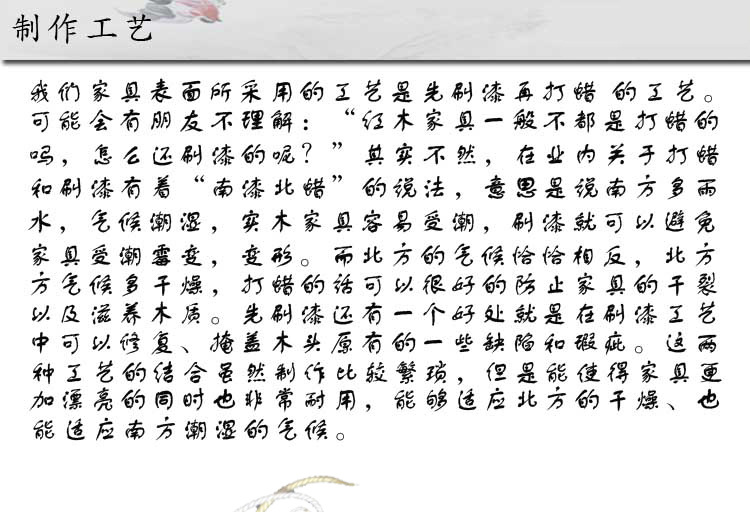 制作工艺
我们家具表面所采用的工艺是先刷漆再打蜡 的工艺。
可能会有朋友不理解：“红木家具一般不都是打蜡的
吗，怎么还刷漆的呢？”其实不然，在业内关于打蜡
和刷漆有着“南漆北蜡”的说法，意思是说南方多雨
水，气候潮湿，实木家具容易受潮，刷漆就可以避免
家具受潮霉变，变形。而北方的气候恰恰相反，北方
方气候多干燥，打蜡的话可以很好的防止家具的干裂
以及滋养木质。先刷漆还有一个好处就是在刷漆工艺
中可以修复、掩盖木头原有的一些缺陷和瑕疵。这两
种工艺的结合虽然制作比较繁琐，但是能使得家具更
加漂亮的同时也非常耐用，能够适应北方的干燥、也
能适应南方潮湿的气候。